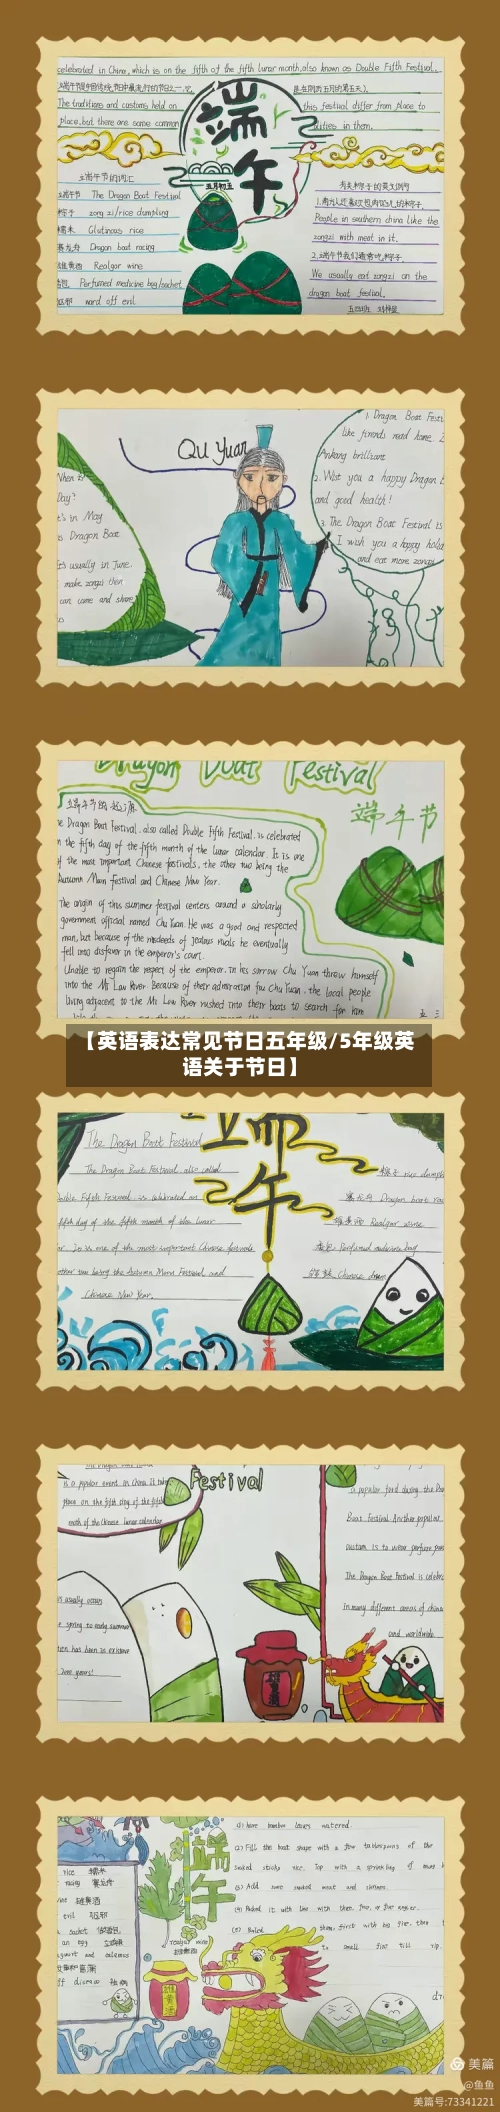 celebrated in China, which is on the fifth of the fifth lunar month, also known as Double Fifth Festival.
The traditions and customs held on
this festival differ from place to
place, but there are some common
in them.
端午
五月初五
端午节的词汇
端午节 The Dragon Boat Festival
粽子 zong zi/rice dumpling
糯米 Glutinous rice
赛龙舟 Dragon boat racing
雄黄酒 Realgar wine
Perfumed medicine bag/sachet
驱邪 ward off evil
People in southern china like the
zongzi with meat in it.
2.端午节我们通常吃粽子.
We usually eat zongzi on the
dragon boat festival.
Qu Yuan
Day?
t's in May
Dragon Boat
usually in June.
make zongzi then
can come and share
1. Dragon Boat Fest
like friends read home.
Ankang brilliant
you a happy Dragon
and good health!
3. The Dragon Boat Festival is
I wish you a happy holid
and eat more zongzi
Dragon Boat Festival
端午节
端午节的起源
e Dragon Boat Festival, also called Double Fifth Festival, is celebrated
n the fifth day of the fifth month of the lunar calendar. It is one
f the most important Chinese festivals, the other two being the
Autumn Moon Festival and Chinese New Year.
The origin of this summer festival centers around a scholarly
government official named Chu Yuan. He was a good and respected
man, but because of the misdeeds of jealous rivals he eventually
fell into disfavor in the emperor's court.
Unable to regain the respect of the emperor, in his sorrow Chu Yuan threw himself
into the Mi Low River. Because of their admiration for Chu Yuan, the local people
living adjacent to the Mi Low River rushed into their boats to search for him
【英语表达常见节日五年级/5年级英
语关于节日】
端午
The Dragon Boat Festival
The Dragon Boat Festival, also called
Double Fifth Festival, is celebrated on
fifth day of the fifth month of the lunar
is one of the most important Chinese festivals,
other two being the Autumn Moon Festival and
Chinese New Year.
粽子 rice dumpli
赛龙舟 Dragon boat rac
雄黄酒 Realgar wine
香包 Perfumed medicine bag
Festival
is a popular event in China. It takes
place on the fifth day of the fifth
month of the Chinese lunar calendar
s usually occurs
spring to early summer
has been in existence
years!
a popular food during the Dra
Boat Festival. Another popular
custom is to wear perfume pou
The Dragon Boat Festival is celebra
in many different areas of china
and worldwide
雄黄酒
端午
rice 糯米
racing 赛龙舟
雄黄酒
evil 驱邪
realgar wine
雄黄酒
(1) have bamboo leaves watered.
(2) Fill the boat shape with a few tablespoons of the
soaked sticky rice. Top with a sprinkling of more
(3) Add some meat and
with them four or five
(5) Boiled them first with big fire, then
to small fire till
美篇
@鱼鱼
美篇号:73341221